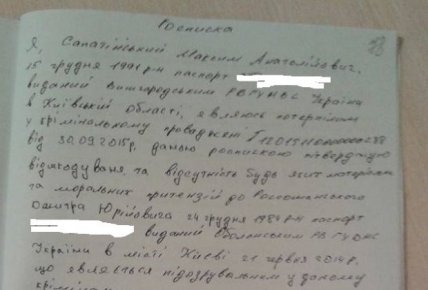 Росписка
Я, Сапатінський Максим Анатолійович,
15 грудня 1991 р-н паспорт
виданий Вишгородським РВ ГУ МВС Україна
в Київській області, являюсь потерпілим
у кримінальному провадженні
від 30.09.2015р, даною роспискою підтверджую
відшкодування та відсутність будь яких матеріальн
та моральних притензій до
Дмитра Юрійовича 24 грудня 1984 р-н паспорт
виданий Оболонським РВ ГУ ДМС
України в місті Києві 21 червня 2014р.
що являється підозрювальним у даному